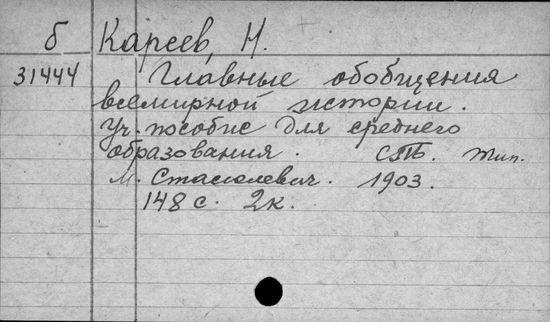 б Кареев, Н.
31444 Главные обобщения
всемирной истории.
Уч. пособие для среднего
образования. СПБ. Тип.
М. Стасюлевич. 1903.
148 с. 2к.